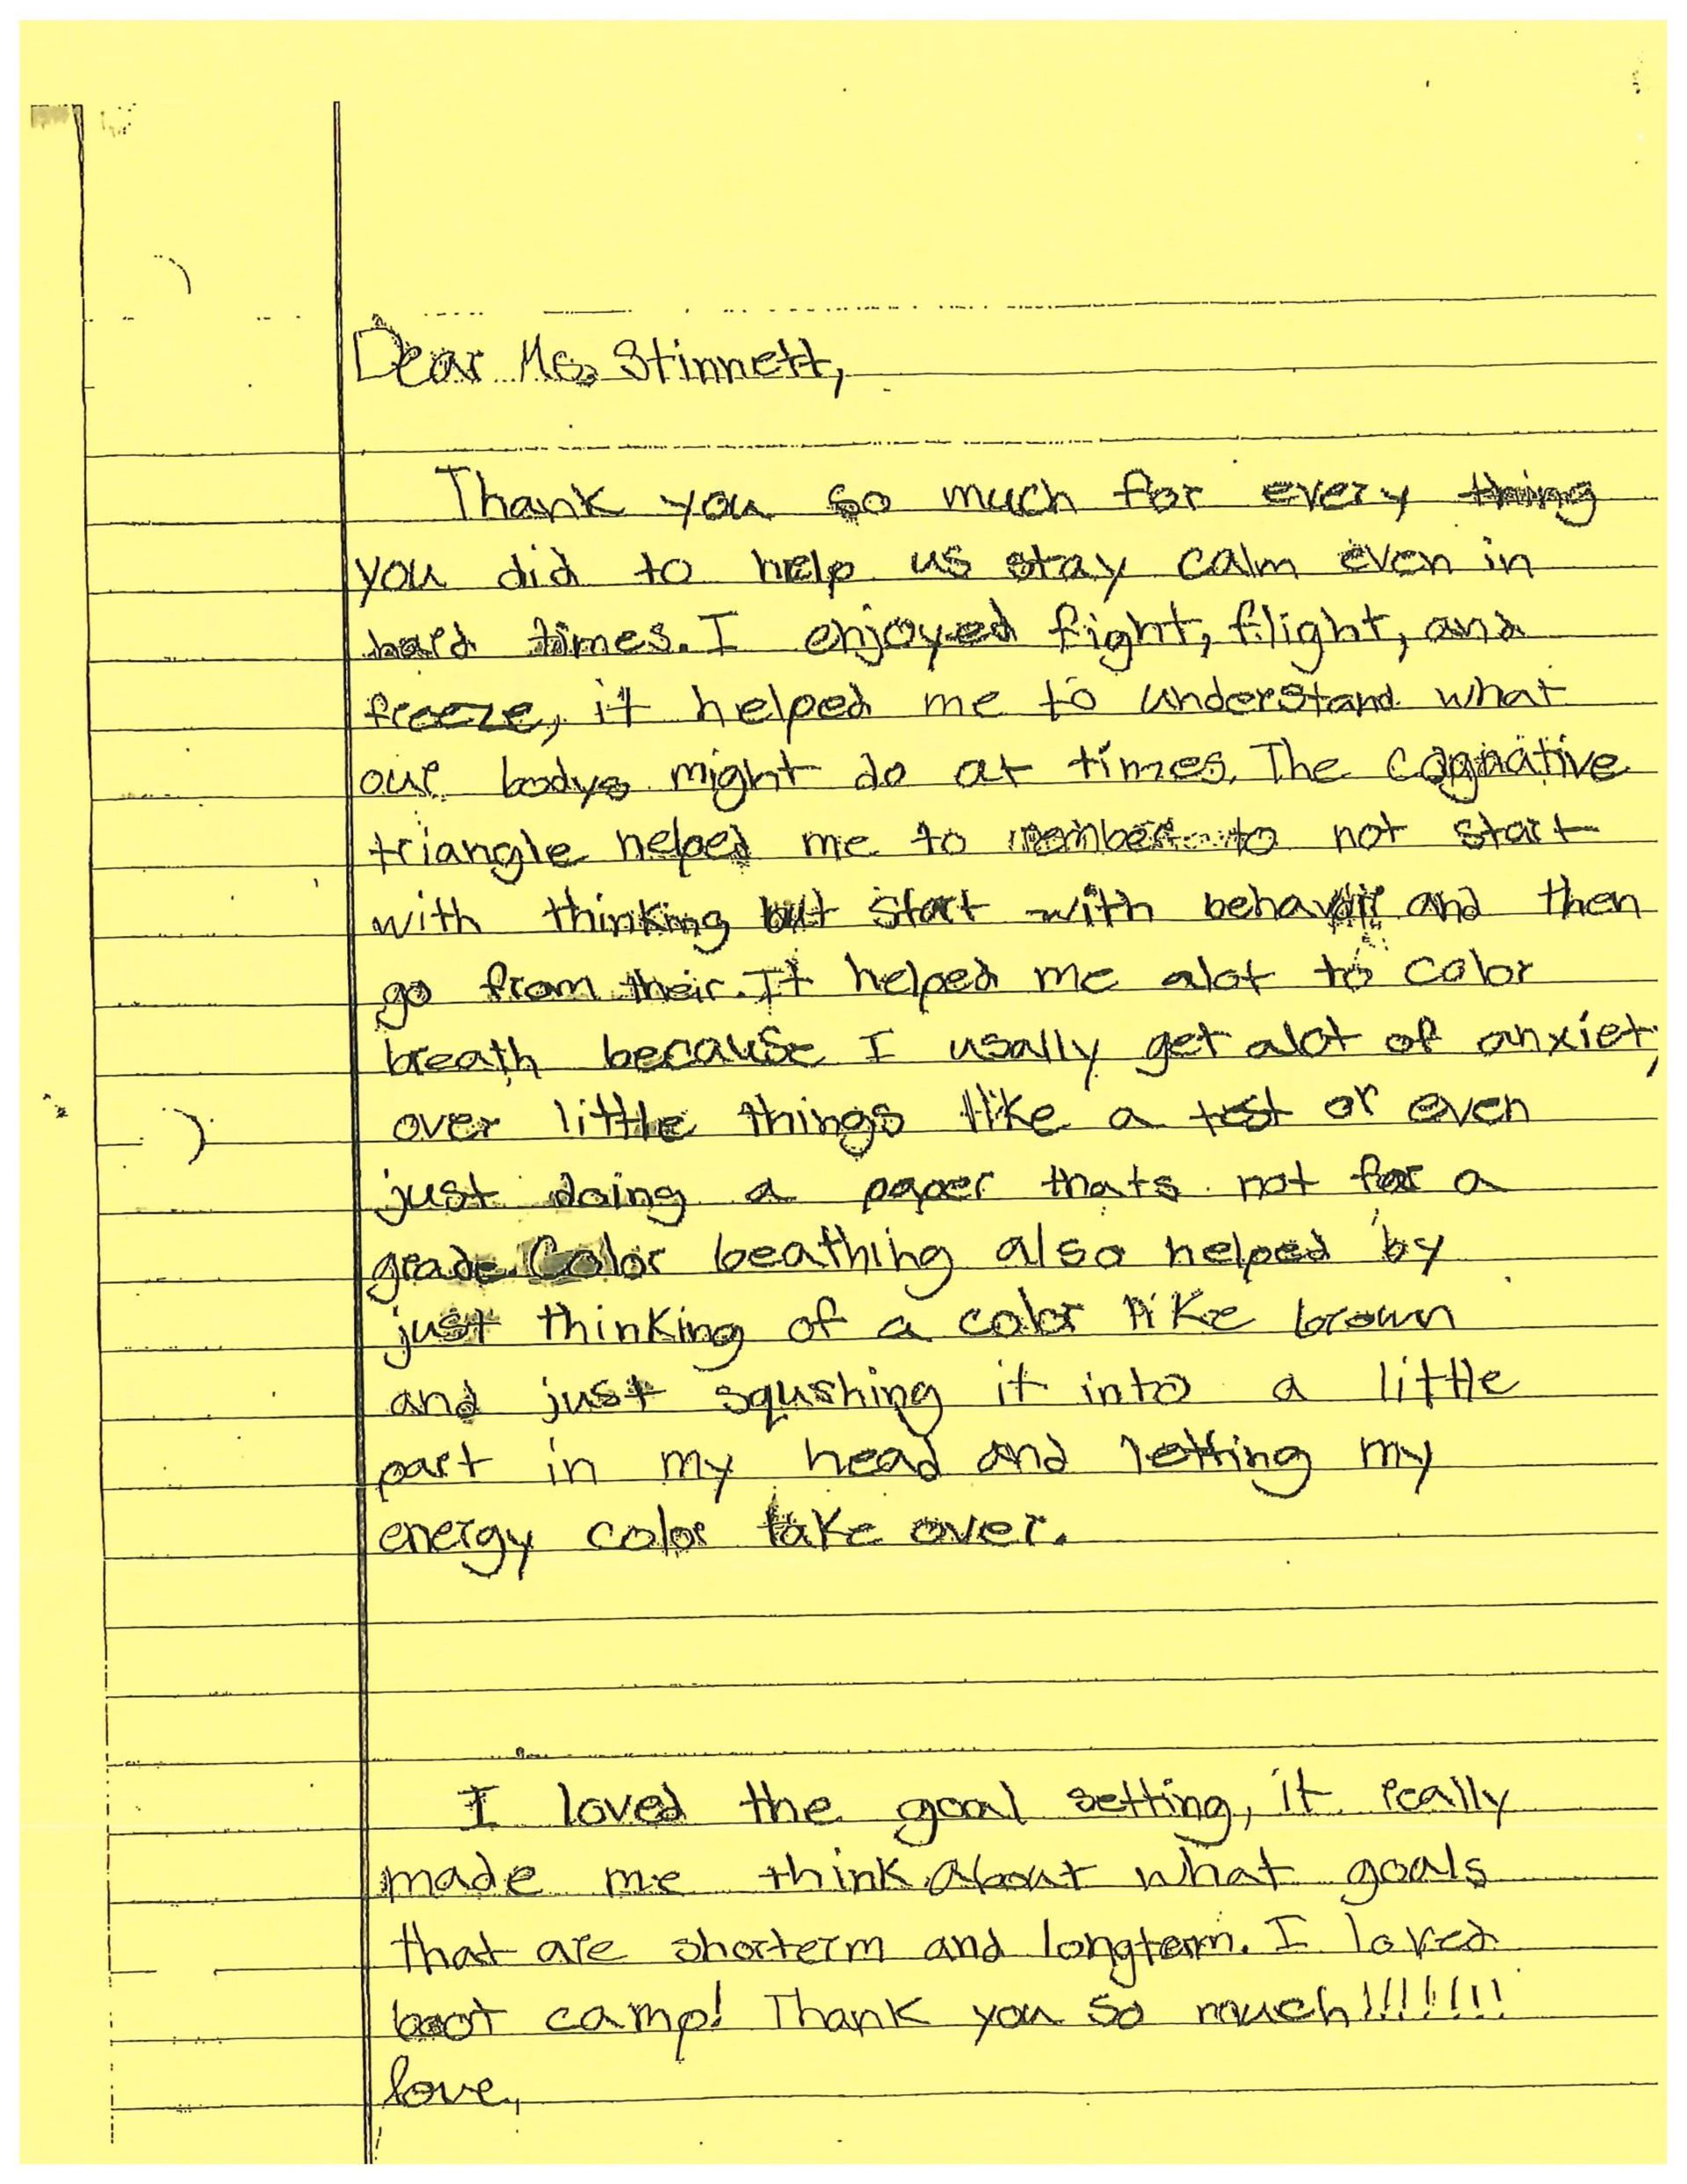 Dear Ms. Stinnett,
Thank you so much for every thing
you did to help us stay calm even in
hard times. I enjoyed fight, flight, and
freeze, it helped me to understand what
our bodys might do at times. The cognative
triangle helped me to to not start
with thinking but start with and then
go from their. It helped me alot to color
breath because I usally get alot of anxiety
over little things like a test or even
just doing a paper thats not for a
grade. Color beathing also helped by
just thinking of a color like brown
and just squshing it into a little
part in my head and letting my
energy color take over.
I loved the goal setting, it really
made me think about what goals
that are shorterm and longterm. I loved
boot camp! Thank you so much!!!!!!!!
love,